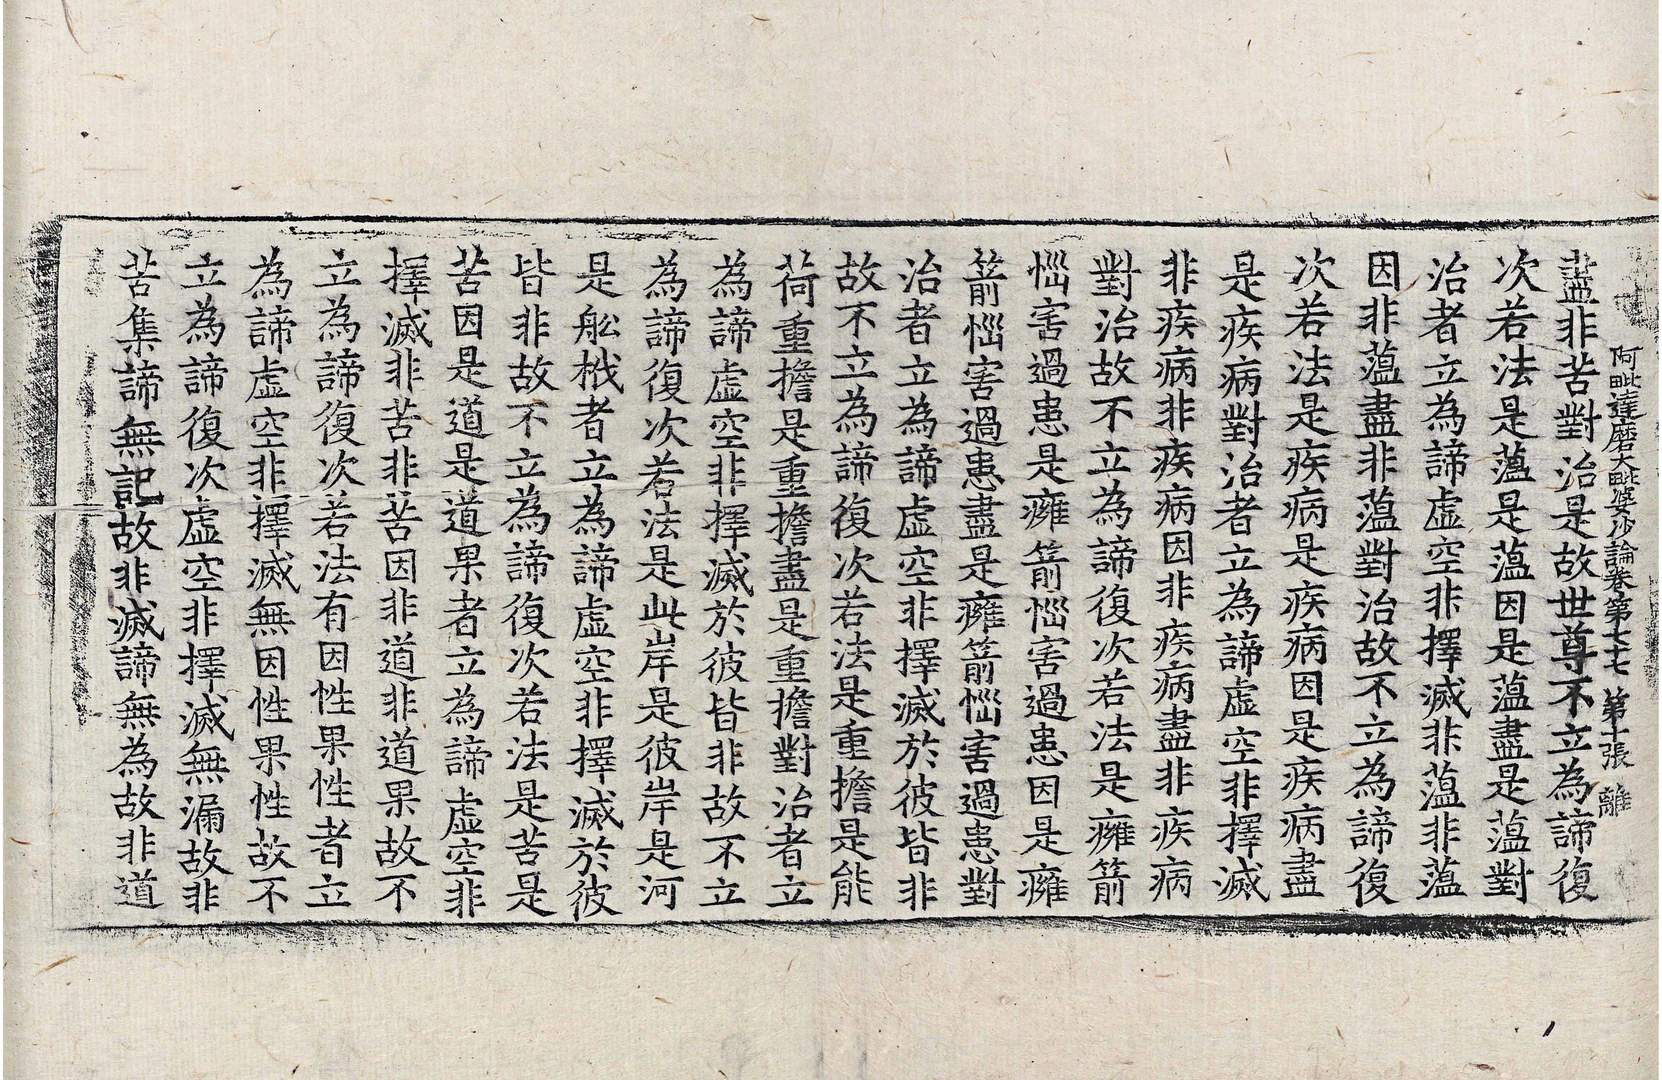 阿毗達磨大毗婆沙論卷第七十七 第十張 離
盡非苦對治是故世尊不立為諦復
次若法是薀是薀因是薀盡是薀對
治者立為諦虛空非擇滅非薀非薀
因非薀盡非薀對治故不立為諦復
次若法是疾病是疾病因是疾病盡
是疾病對治者立為諦虛空非擇滅
非疾病非疾病因非疾病盡非疾病
對治故不立為諦復次若法是癰箭
惱害過患是癰箭惱害過患因是癰
箭惱害過患盡是癰箭惱害過患對
治者立為諦虛空非擇滅於彼皆非
故不立為諦復次若法是重擔是能
荷重擔是重擔盡是重擔對治者立
為諦虛空非擇滅於彼皆非故不立
為諦復次若法是此岸是彼岸是河
是舩栰者立為諦虛空非擇滅於彼
皆非故不立為諦復次若法是苦是
苦因是道是道果者立為諦虛空非
擇滅非苦非苦因非道非道果故不
立為諦復次若法有因性果性者立
為諦虛空非擇滅無因性果性故不
立為諦復次虛空非擇滅無漏故非
苦集諦無記故非滅諦無為故非道